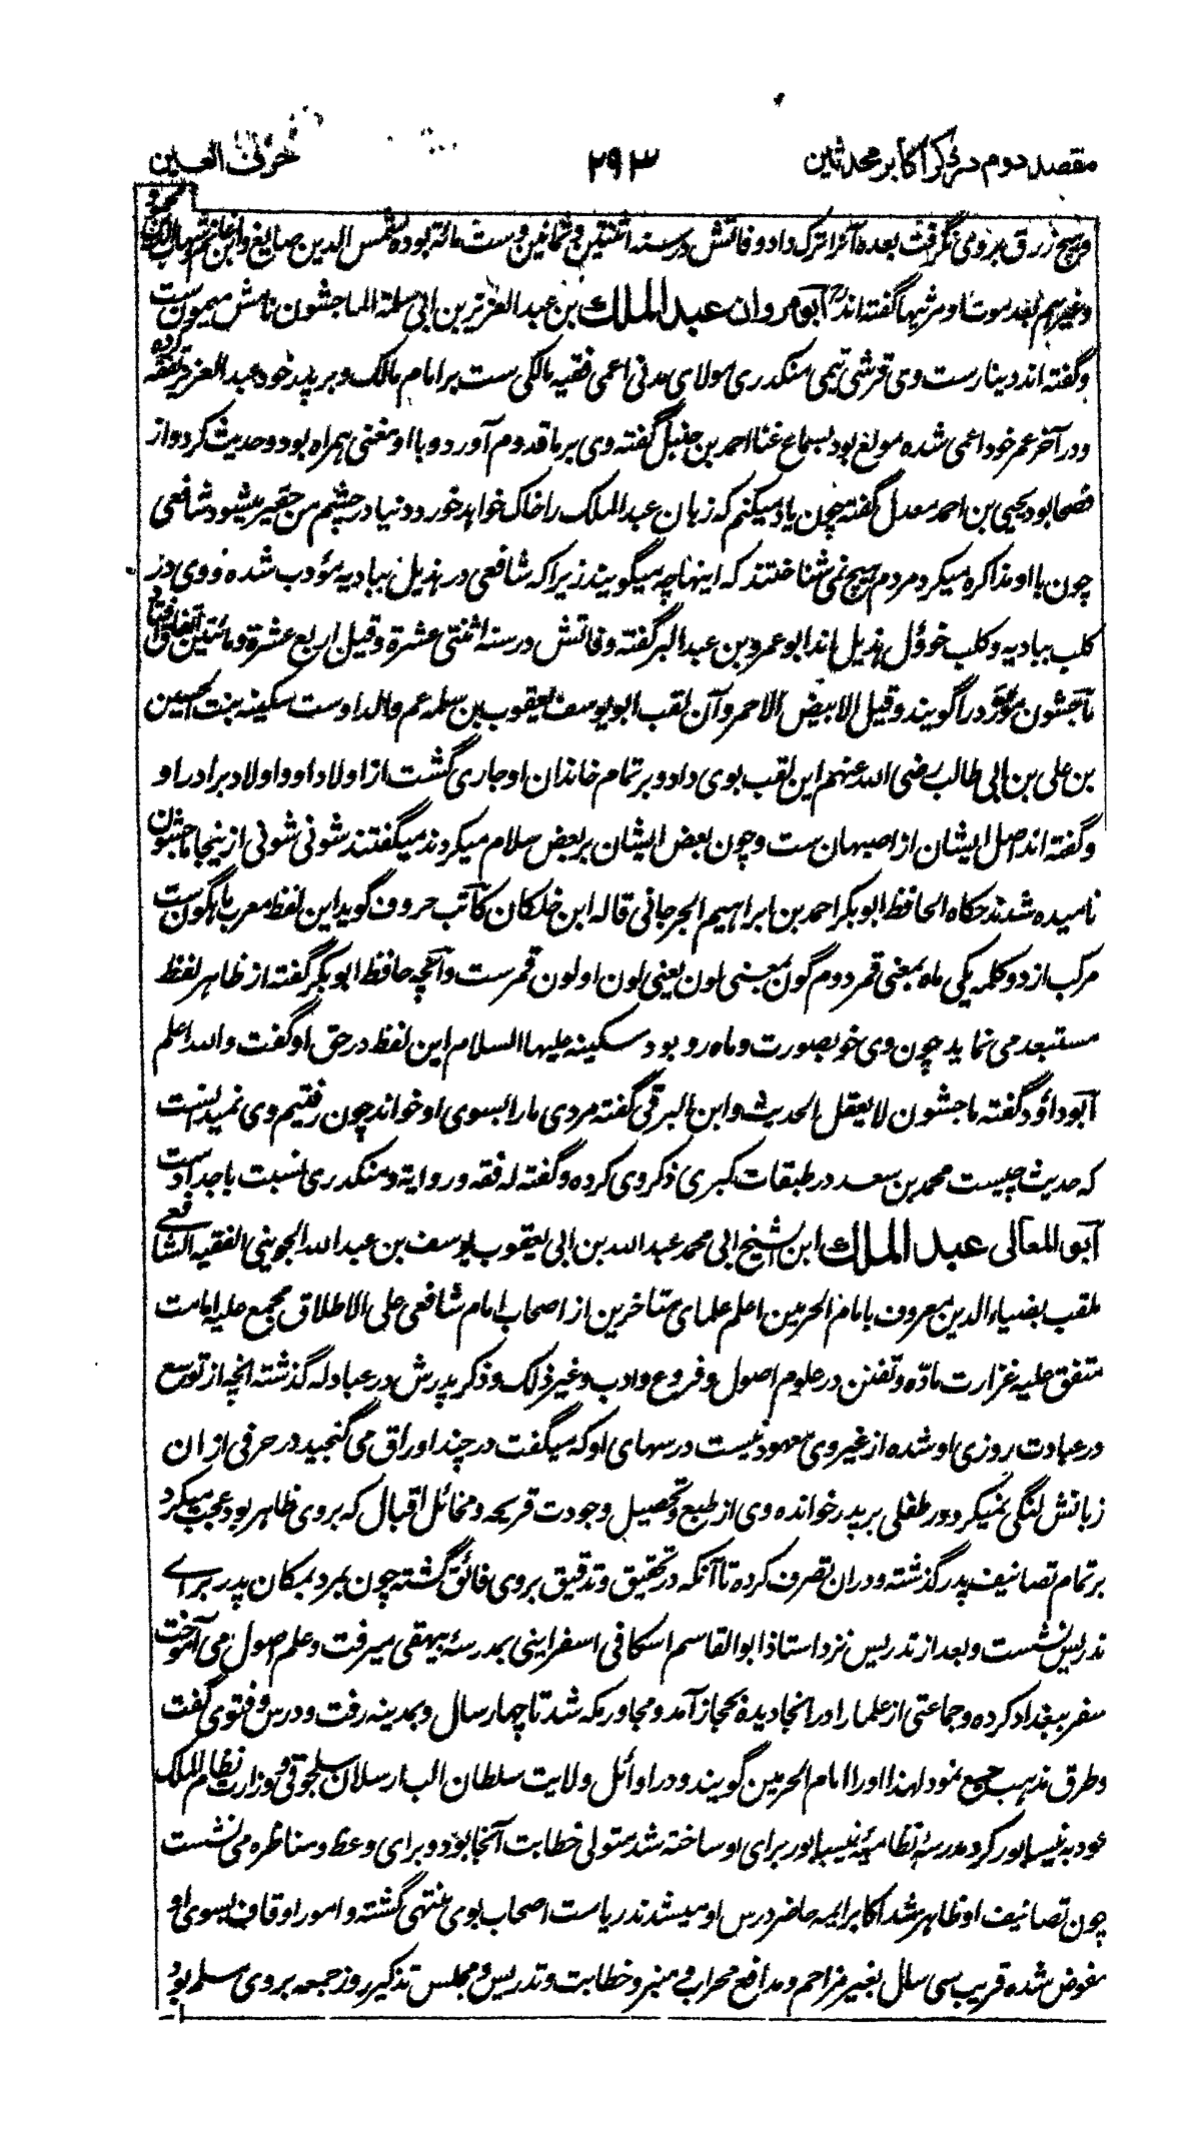 مقصد دوم در ذکر اکابر محدثین ۲۹۳ حرف العین
و هیچ رزق بر وی نگرفت بعده آنرا ترک داد وفاتش در سنه اثنتین و ثمانین و ست مائة بوده شمس الدین صایغ و ابن غانم شهاب محمود
و غیرهم بعد موت او مرثیها گفته اند ابو مروان عبد الملك بن عبد العزیز بن ابی سلمة الماجشون نامش میمون ست
و گفته اند دینار ست وی قرشی تیمی منکدری مولای مدنی اعمی فقیه مالکی ست بر امام مالک و بر پدر خود عبد العزیز تفقه کرده
و در آخر عمر خود اعمی شده مولع بود بسماع غنا احمد بن حنبل گفته وی بر ما قدوم آورد و با او مغنی همراه بود و حدیث کرد و از
فصحا بود یحیی بن احمد معدل گفته چون یاد میکنم که زبان عبد الملک را خاک خواهد خورد دنیا در چشم من حقیر میشود شافعی
چون با او مذاکره میکرد مردم هیچ نمی شناختند که اینها چه میگویند زیرا که شافعی در هذیل ببادیه مؤدب شده و وی در
کلب ببادیه و کلب خؤول هذیل اند ابو عمرو بن عبد البر گفته وفاتش در سنه اثنتی عشرة و قیل اربع عشرة و مائتین اتفاق افتاد
ماجشون مورد را گویند و قیل الابیض الاحمر و آن لقب ابو یوسف یعقوب بن سلمه عم والد اوست سکینه بنت الحسین
بن علی بن ابی طالب رضی الله عنهم این لقب بوی داد و بر تمام خاندان او جاری گشت از اولاد او و اولاد برادر او
و گفته اند اصل ایشان از اصبهان ست و چون بعض ایشان بر بعض سلام میکردند میگفتند شونی شونی از ینجا ماجشون
نامیده شدند حکاه الحافظ ابو بکر احمد بن ابراهیم الجرجانی قاله ابن خلکان کاتب حروف گوید این لفظ معرب ماهگون ست
مرکب از دو کلمه یکی ماه بمعنی قمر دوم گون بمعنی لون یعنی لون او لون قمر ست و آنچه حافظ ابو بکر گفته از ظاهر لفظ
مستبعد می نماید چون وی خوبصورت و ماه رو بود سکینه علیها السلام این لفظ در حق او گفت والله اعلم
ابو داود گفته ماجشون لا یعقل الحدیث و ابن البرقی گفته مردی ما را بسوی او خواند چون رفتیم وی نمیدانست
که حدیث چیست محمد بن سعد در طبقات کبری ذکر وی کرده و گفته له فقه و روایة و منکدری نسبت باجداد ست
ابو المعالی عبد الملك ابن الشیخ ابی محمد عبد الله بن ابی یعقوب یوسف بن عبد الله الجوینی الفقیه الشافعی
ملقب بضیاء الدین معروف بامام الحرمین اعلم علمای متاخرین از اصحاب امام شافعی علی الاطلاق مجمع علیه امامت
متفق علیه غزارت ماده و تفنن در علوم اصول و فروع و ادب و غیر ذلک و ذکر پدرش در عبادله گذشته آنچه از توسع
در عبادت روزی او شده از غیر وی معهود نیست درسهای او که میگفت در چند اوراق می گنجید در حرفی از ان
زبانش لنگی نمیکرد در طفلی بر پدر خوانده وی از طبع و تحصیل و جودت قریحه و مخائل اقبال که بر وی ظاهر بود عجب میکرد
بر تمام تصانیف پدر گذشته و دران تصرف کرده تا آنکه در تحقیق و تدقیق بر وی فائق گشته چون بمرد بمکان پدر برای
تدریس نشست و بعد از تدریس نزد استاذ ابو القاسم اسکافی اسفراینی بمدرسه بیهقی میرفت و علم اصول می آموخت
سفر ببغداد کرده و جماعتی از علما را در انجا دیده بحجاز آمد و مجاور مکه شد تا چهار سال و بمدینه رفت و درس و فتوی گفت
و طرق مذهب جمع نمود لهذا او را امام الحرمین گویند و در اوائل ولایت سلطان الب ارسلان سلجوقی و وزارت نظام الملک
عود به نیسابور کرد مدرسه نظامیه نیسابور برای او ساخته شد متولی خطابت آنجا بود و برای وعظ و مناظره می نشست
چون تصانیف او ظاهر شد اکابر ایمه حاضر درس او میشدند ریاست اصحاب بوی منتهی گشته و امور اوقاف بسوی او
مفوض شده قریب سی سال بغیر مزاحم و مدافع محراب و منبر و خطابت و تدریس و مجلس تذکیر روز جمعه بر وی مسلم بود